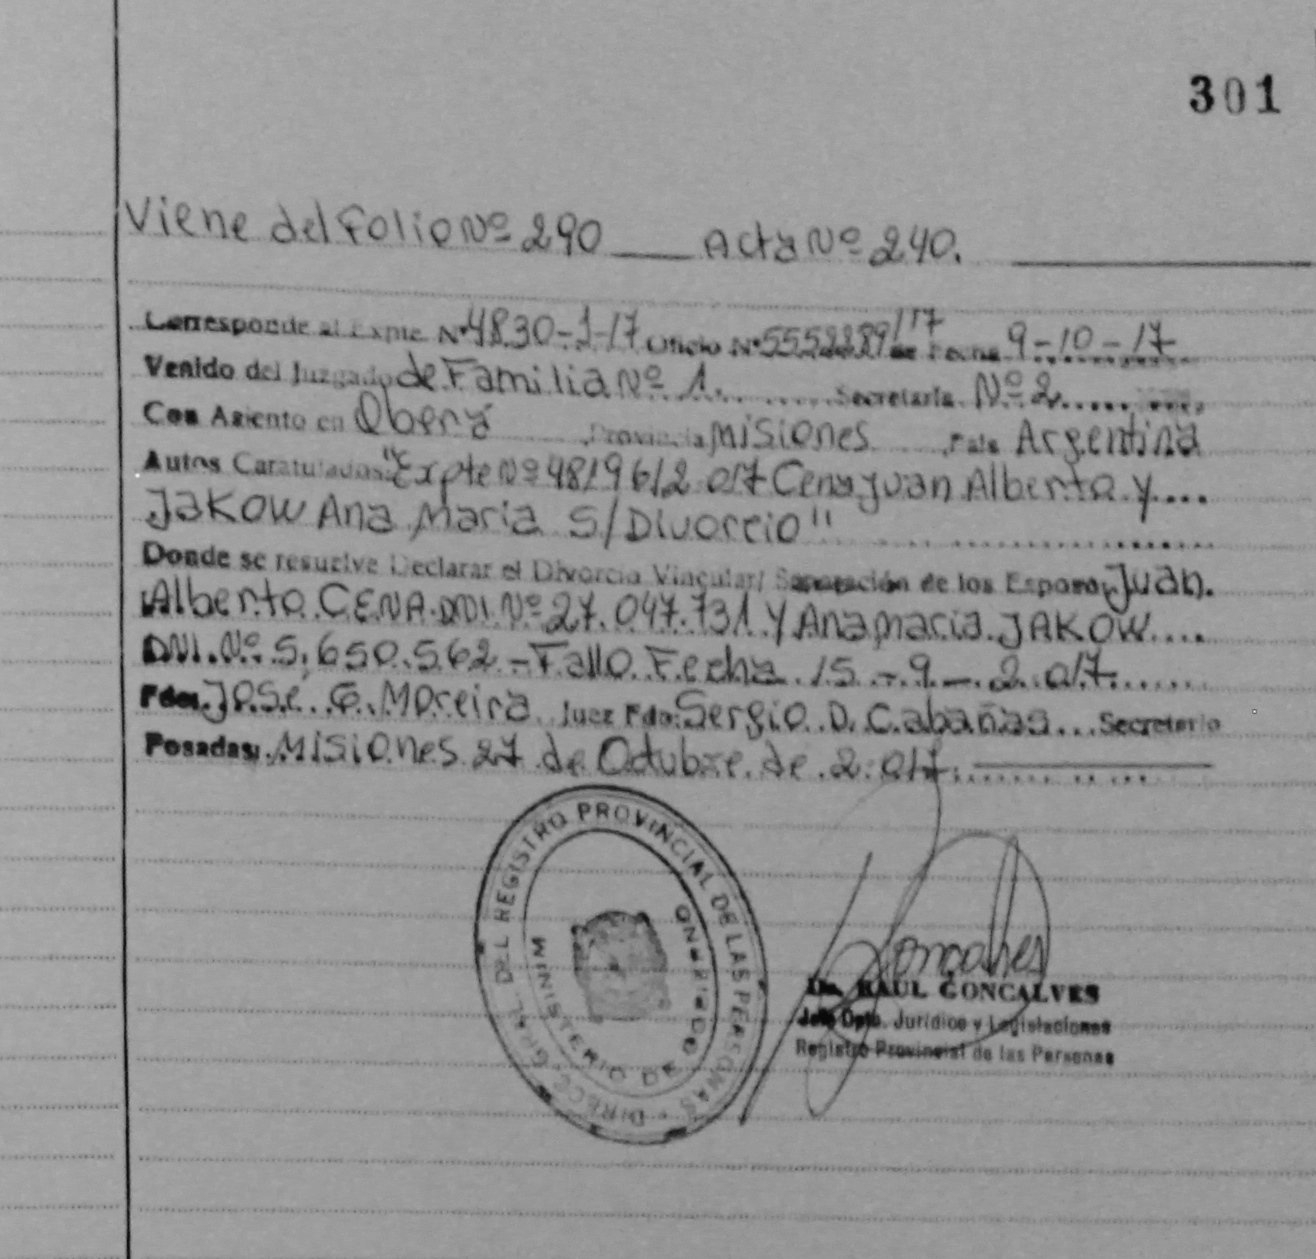 301
Viene del Folio Nº 290 ___ Acta Nº 240.
Corresponde al Expte Nº 4830-1-17 Oficio Nº 5552289/17 de Fecha 9-10-17
Venido del Juzgado de Familia Nº 1. Secretaría Nº 2
Con Asiento en Oberá Provincia Misiones País Argentina
Autos Caratulados "Expte Nº 48196/2.017 Cena Juan Alberto y
JAKOW Ana Maria S/ Divorcio"
Donde se resuelve Declarar el Divorcio Vincular/ Separación de los Esposos Juan
Alberto CENA DNI Nº 27.047.731 Y Ana Maria JAKOW
DNI. Nº 5.650.562 - Fallo Fecha 15 - 9 - 2.017
Fdo: José G. Moreira Juez Fdo: Sergio D. Cabañas Secretario
Posadas, Misiones 27 de Octubre de 2.017.
DIRECC. GRAL. DEL REGISTRO PROVINCIAL DE LAS PERSONAS
MINISTERIO DE GOBIERNO
Goncalves
Dr. RAUL GONCALVES
Jefe Dpto. Jurídico y Legislaciones
Registro Provincial de las Personas